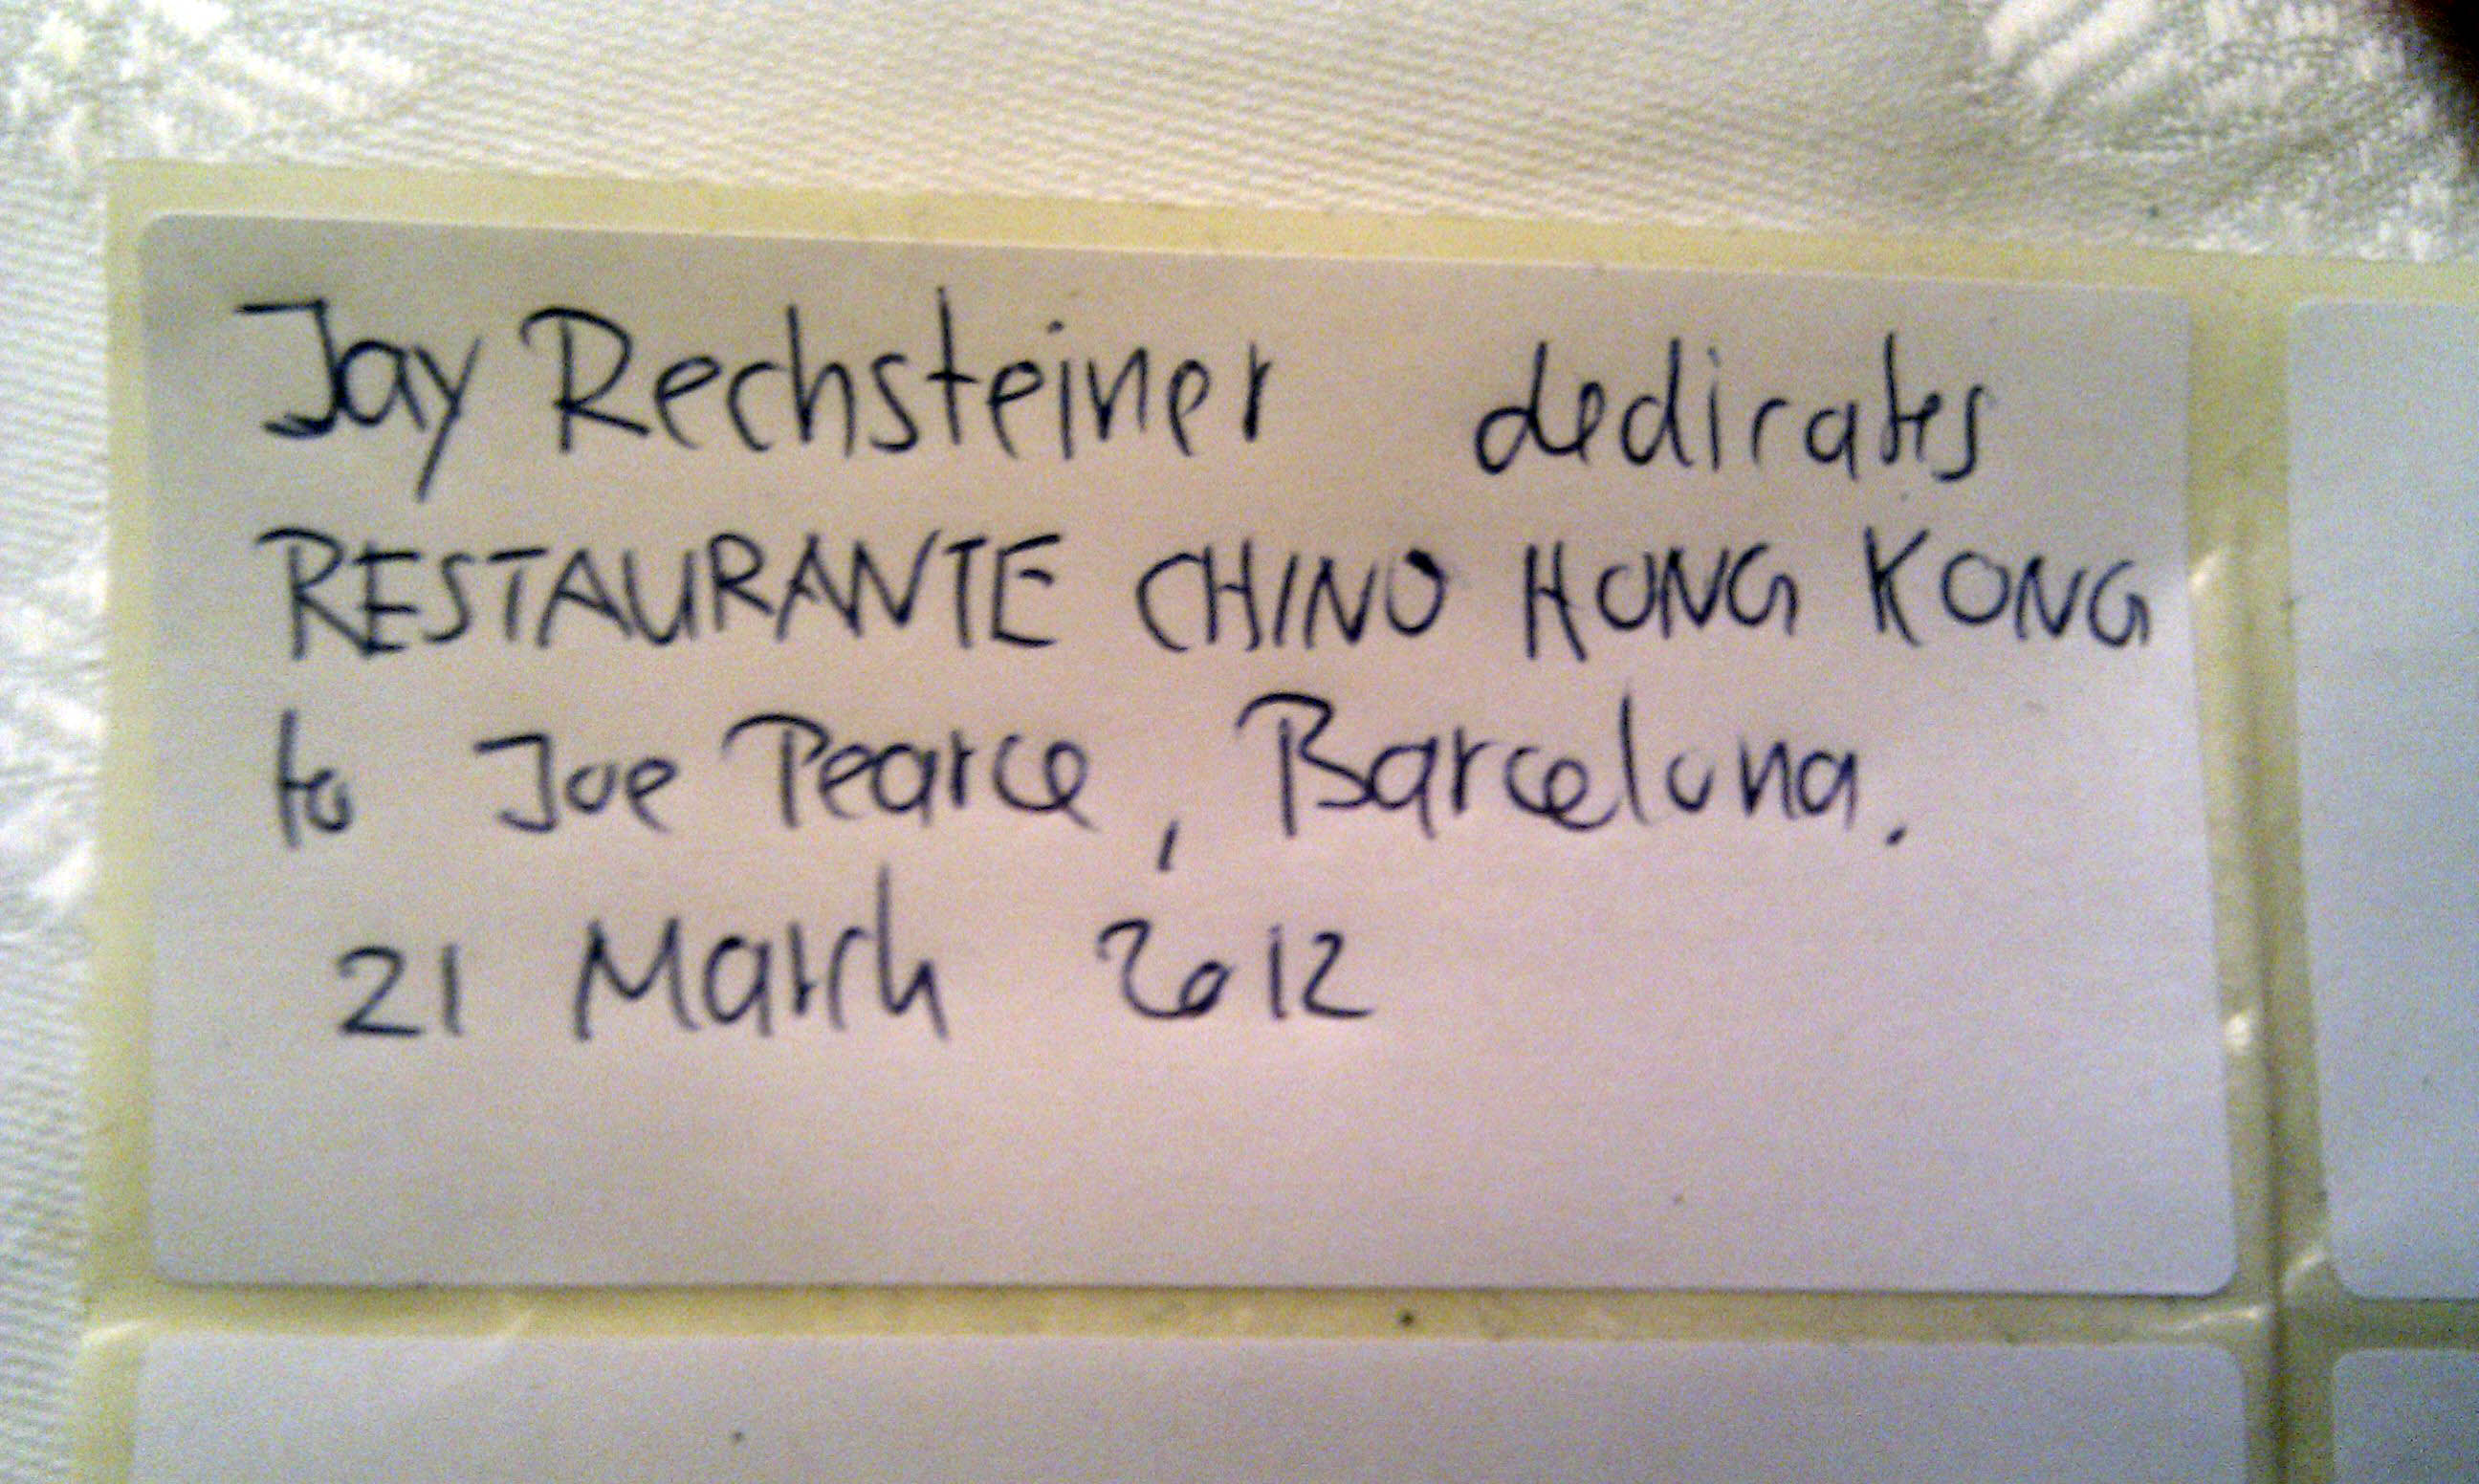 Jay Rechsteiner dedicates
RESTAURANTE CHINO HONG KONG
to Joe Pearce, Barcelona.
21 March 2012